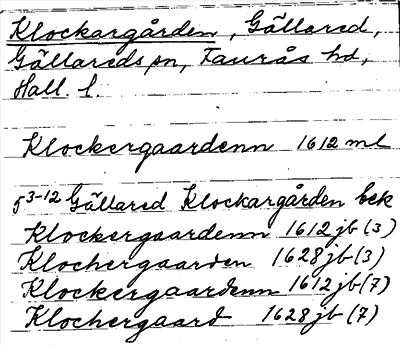 Klockargården, Gällared,
Gällareds sn, Faurås hd,
Hall. l.
Klockergaardenn 1612 ml
5 3-12 Gällared Klockargården bek
Klockergaardenn 1612 jb (3)
Klochergaarden 1628 jb (3)
Klockergaardenn 1612 jb (7)
Klochergaard 1628 jb (7)